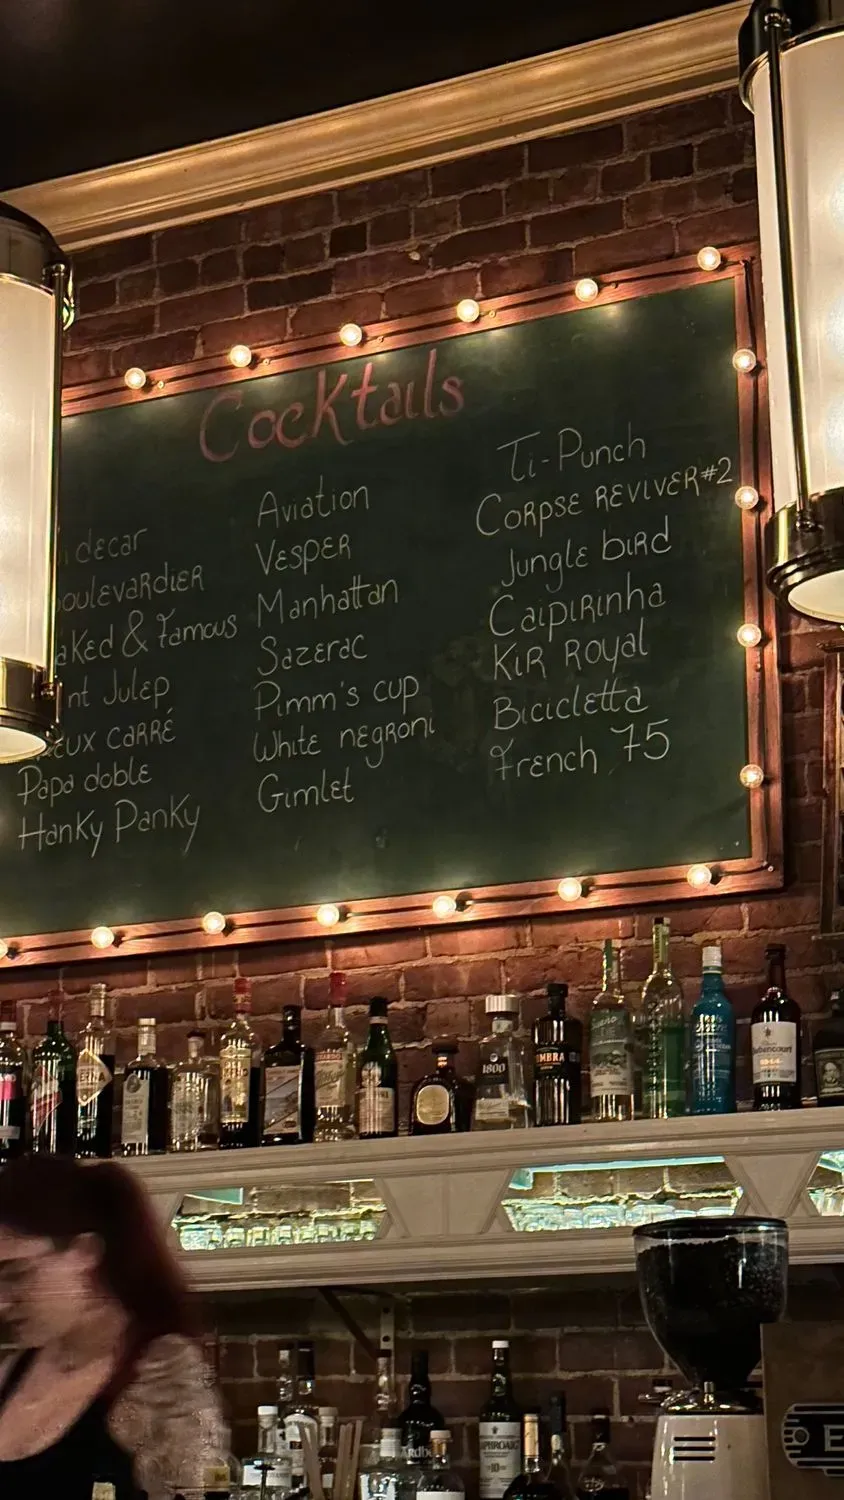 Cocktails
idecar
oulevardier
aked & Famous
nt Julep
eux carré
Papa doble
Hanky Panky
Aviation
Vesper
Manhattan
Sazerac
Pimm's cup
White negroni
Gimlet
Ti-Punch
Corpse Reviver #2
Jungle bird
Caipirinha
Kir Royal
Bicicletta
French 75
1800
10